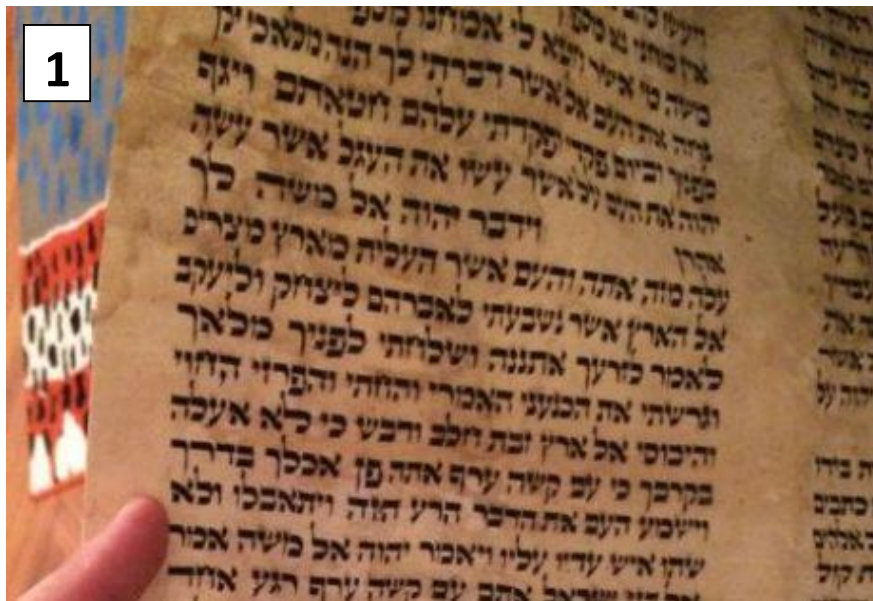 1
אין מחני נא
משה מי אשר חטא לי אמחנו מספ
נחה את העם אל אשר דברתי לך הנה מלאכי ילך
לפניך וביום פקדי ופקדתי עלהם חטאתם ויגף
יהוה את העם על אשר עשו את העגל אשר עשה
אהרן וידבר יהוה אל משה לך
עלה מזה אתה והעם אשר העלית מארץ מצרים
אל הארץ אשר נשבעתי לאברהם ליצחק וליעקב
לאמר לזרעך אתננה ושלחתי לפניך מלאך
וגרשתי את הכנעני האמרי והחתי והפרזי החוי
והיבוסי אל ארץ זבת חלב ודבש כי לא אעלה
בקרבך כי עם קשה ערף אתה פן אכלך בדרך
וישמע העם את הדבר הרע הזה ויתאבלו ולא
שתו איש עדיו עליו ויאמר יהוה אל משה אמר
אל בני ישראל אתם עם קשה ערף רגע אחד